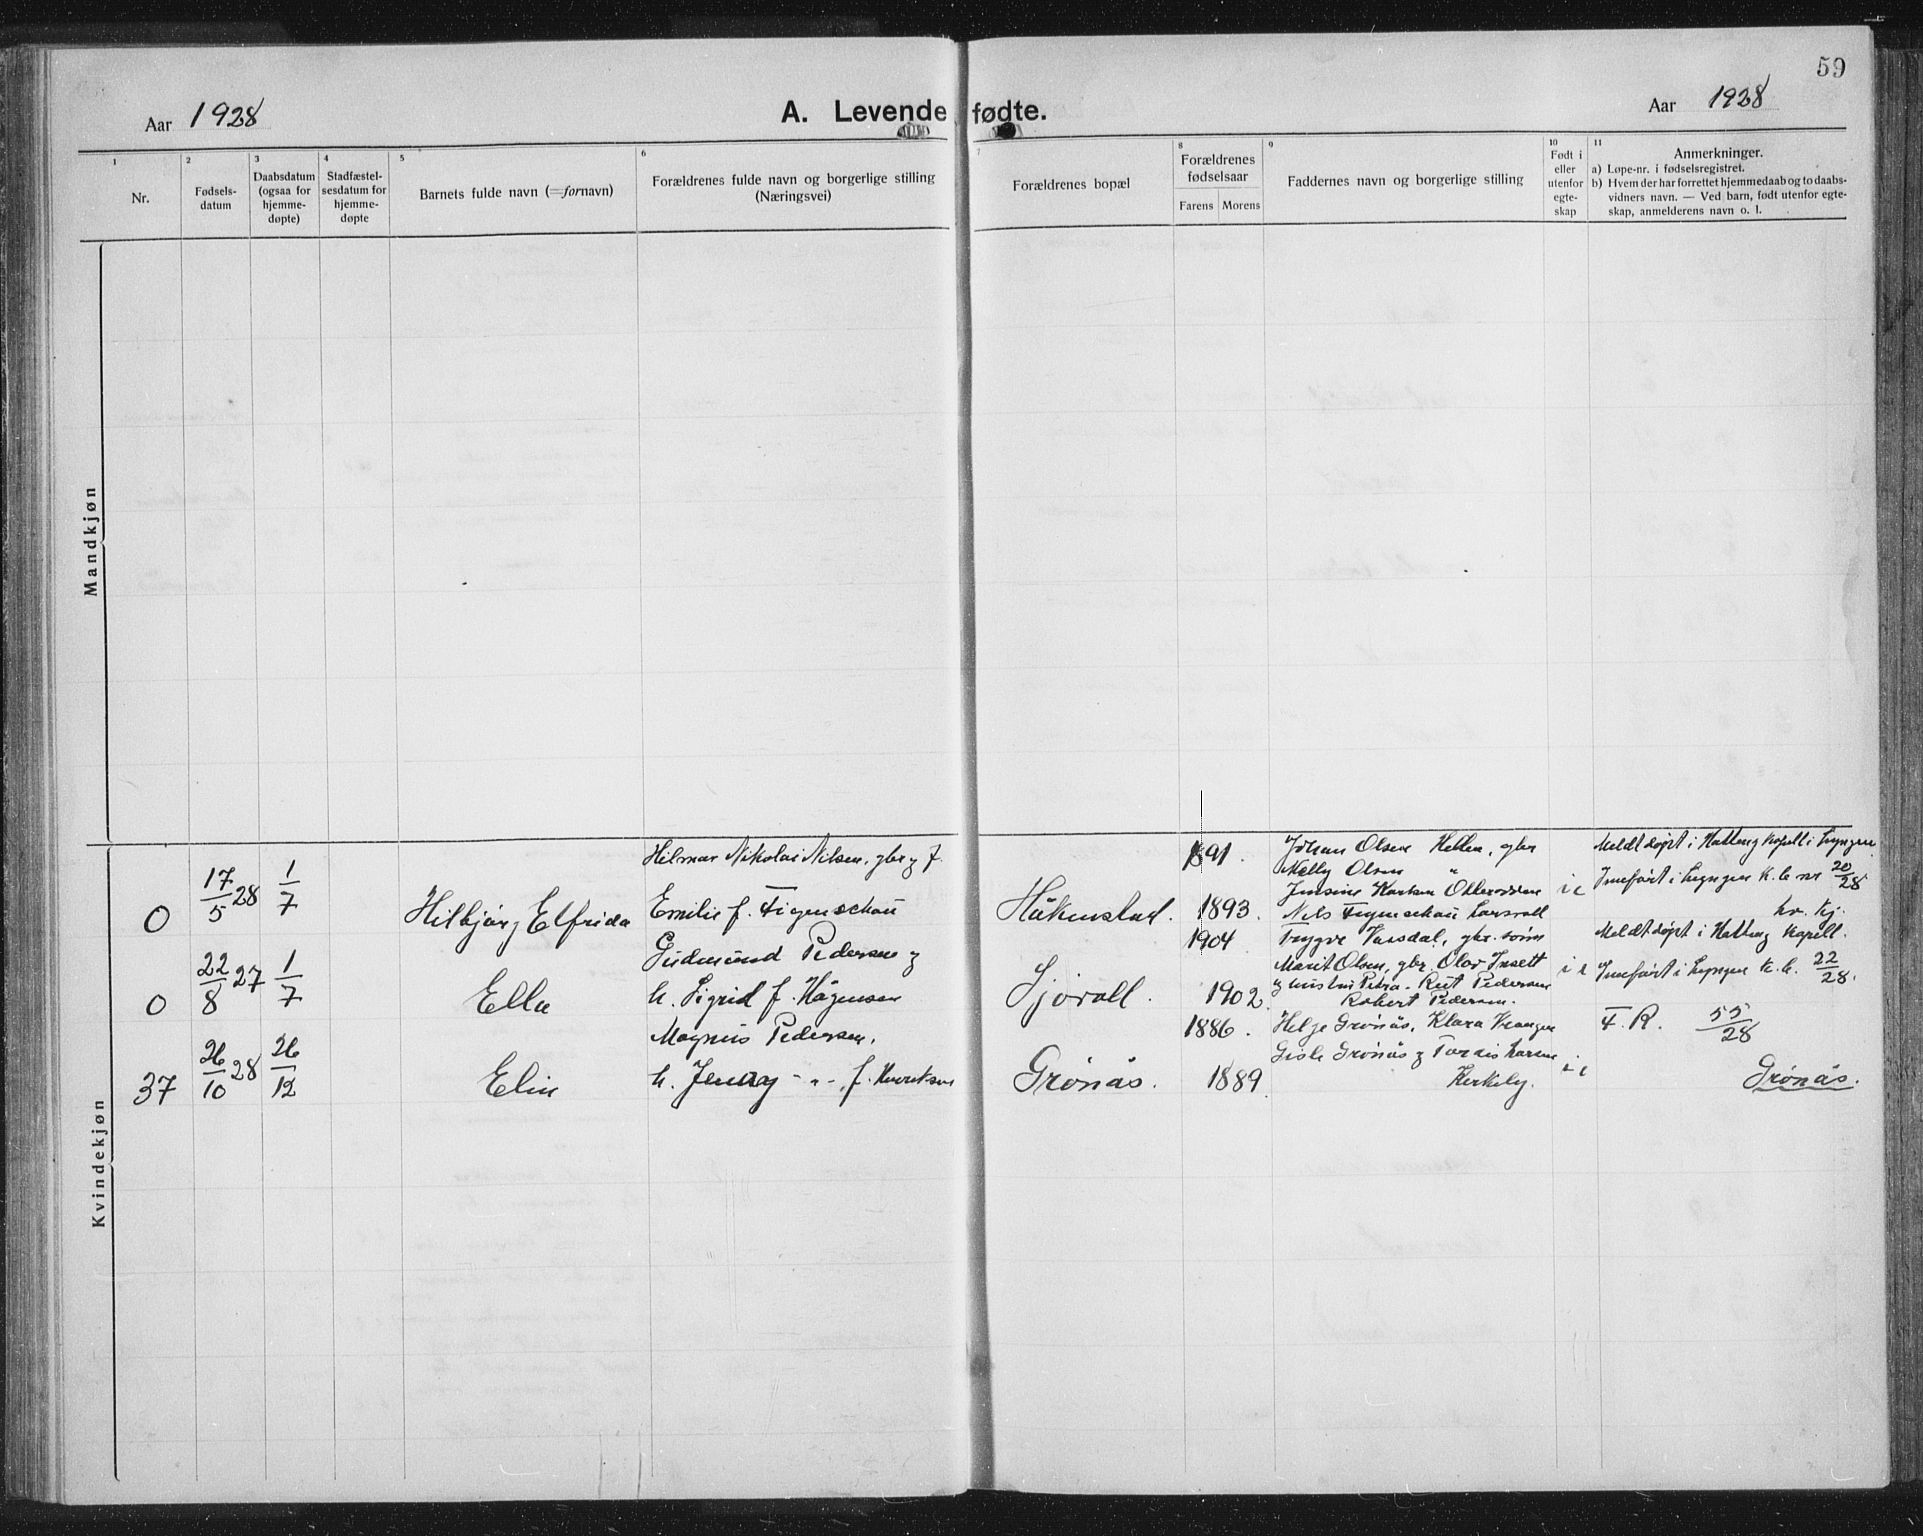 59
Aar 1928
A. Levende fødte.
Aar 1928
1
2
3
4
5
6
7
8
9
10
11
Nr.
Fødsels-
datum
Daabsdatum
(ogsaa for
hjemme-
døpte)
Stadfæstel-
sesdatum for
hjemme-
døpte
Barnets fulde navn (=fornavn)
Forældrenes fulde navn og borgerlige stilling
(Næringsvei)
Forældrenes bopæl
Forældrenes
fødselsaar
Farens Morens
Faddernes navn og borgerlige stilling
Født i
eller
utenfor
egte-
skap
Anmerkninger.
a) Løpe-nr. i fødselsregistret.
b) Hvem der har forrettet hjemmedaab og to daabs-
vidners navn. — Ved barn, født utenfor egte-
skap, anmelderens navn o. l.
Mandkjøn
Kvindekjøn
0
17/5 28
1/7
Hilbjørg Elfrida
Hilmar Nikolai Nilsen, gbr og f.
Emilie f. Figenschau
Håkenstad.
1891.
1893.
Johan Olsen Hellen, gbr
Nelly Olsen "
Jensine Karlsen
Nils Figenschau Larsvoll
i e
Meldt døpt i Hatteng kapell i Lyngen.
Innført i Lyngen K.b. nr 20/28
0
22/8 27
1/7
Ella
Gudmund Pedersen og
h. Sigrid f. Hågensen
Sjøvoll.
1904
1902
Trygve Vassdal, gbr. sønn
Marit Olsen, gbr. Olav Insett
og hustru Petra. Rut Pedersen
Robert Pedersen.
i e
Meldt døpt i Hatteng Kapell.
Innført i Lyngen K.b. 22/28.
37
26/10 28
26/12
Elin
Magnus Pedersen,
h. Jenny - " - f. Henriksen
Grønås.
1886.
1889.
Helge Grønås, Klara
Gisle Grønås og Tordis Larsen
Kirkely.
i e
F. R. 55/28
Grønås.